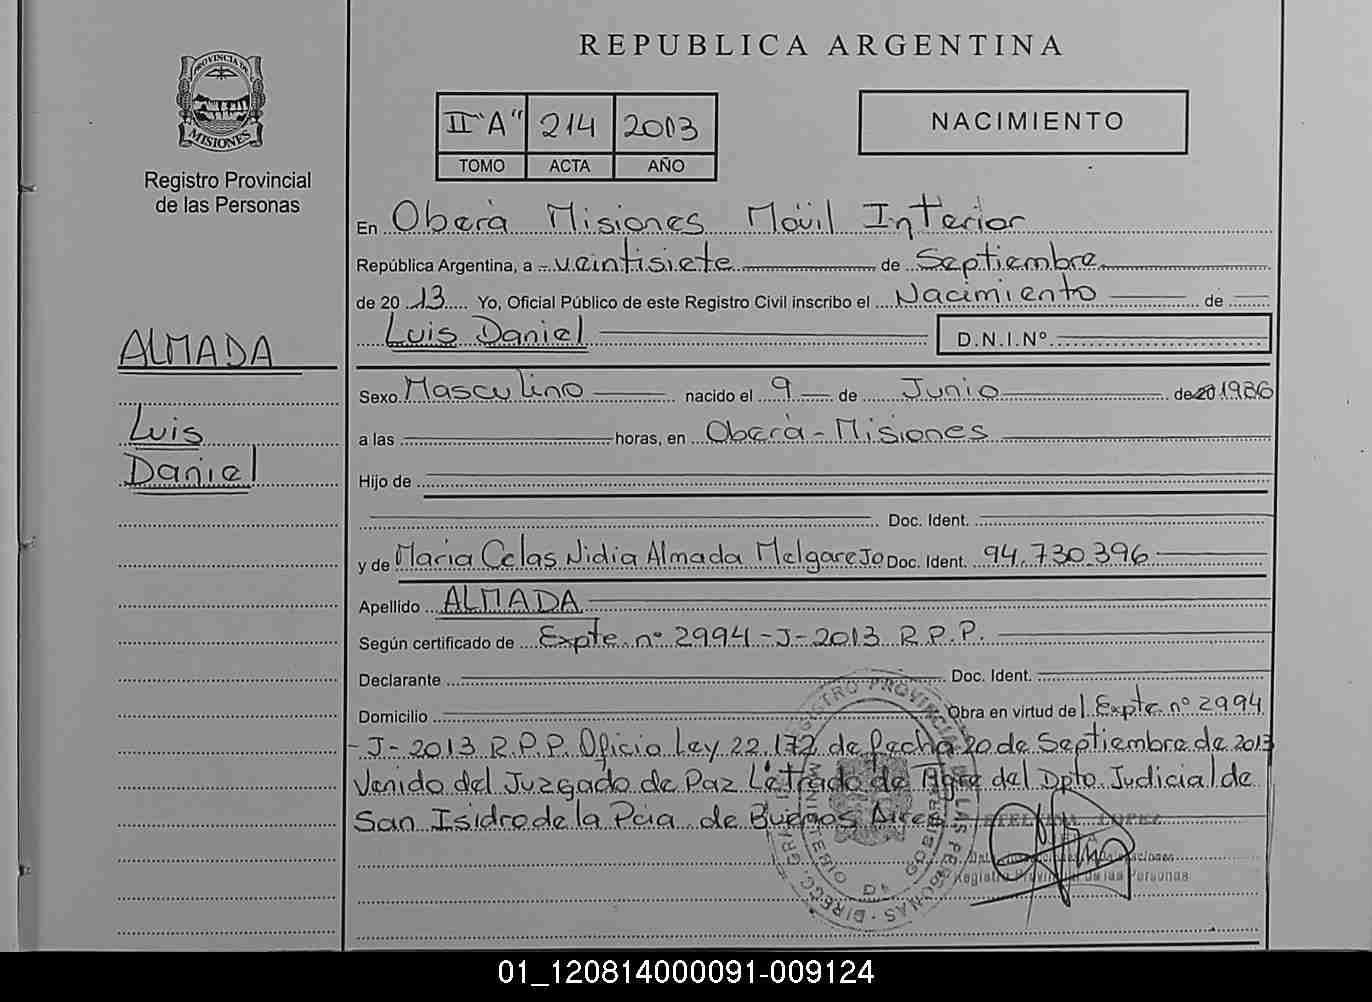 REPUBLICA ARGENTINA
PROVINCIA DE
MISIONES
Registro Provincial
de las Personas
II "A" 214 2013
TOMO ACTA AÑO
NACIMIENTO
En Oberà Misiones Móvil Interior
República Argentina, a veintisiete de Septiembre
de 20 13 Yo, Oficial Público de este Registro Civil inscribo el Nacimiento de
Luis Daniel D.N.I.Nº
ALMADA
Luis
Daniel
Sexo Masculino nacido el 9 de Junio de 20 1986
a las horas, en Oberà - Misiones
Hijo de
Doc. Ident.
y de Maria Celas Nidia Almada Melgarejo Doc. Ident. 94.730.396
Apellido ALMADA
Según certificado de Expte. nº 2994-J-2013 R.P.P.
Declarante Doc. Ident.
Domicilio Obra en virtud de Expte. nº 2994
-J-2013 R.P.P. Oficio Ley 22.172 de fecha 20 de Septiembre de 2013
Venido del Juzgado de Paz Letrado de Tigre del Dpto. Judicial de
San Isidro de la Pcia de Buenos Aires
LOPEZ
Registro Provincial de las Personas
REGISTRO PROVINCIAL DE LAS PERSONAS
01_120814000091-009124